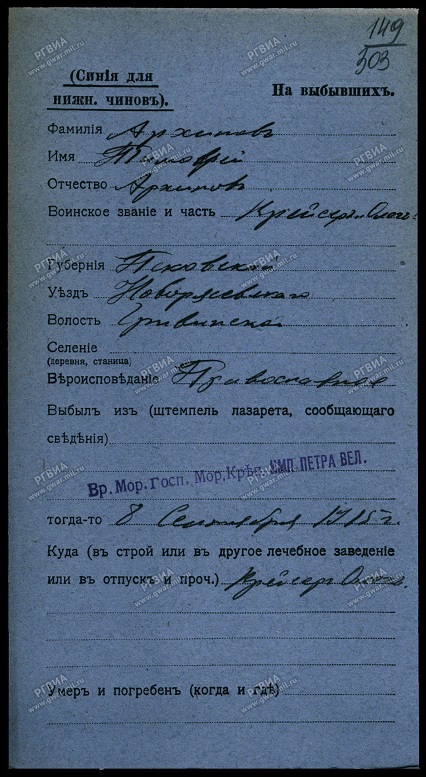 149
303
(Синія для
нижн. чиновъ).
На выбывшихъ.
Фамилія Архиповъ
Имя Тимофей
Отчество Архиповъ
Воинское званіе и часть Крейсеръ „Олегъ"
Губернія Псковской
Уѣздъ Новоржевского
Волость
Селеніе
(деревня, станица)
Вѣроисповѣданіе Православное
Выбылъ изъ (штемпель лазарета, сообщающаго
свѣдѣнія)
Вр. Мор. Госп. Мор. Крѣп. ИМП. ПЕТРА ВЕЛ.
тогда-то 8 Сентября 1915 г.
Куда (въ строй или въ другое лечебное заведеніе
или въ отпускъ и проч.) Крейсеръ Олегъ.
Умеръ и погребенъ (когда и гдѣ)
РГВИА
www.gwar.mil.ru